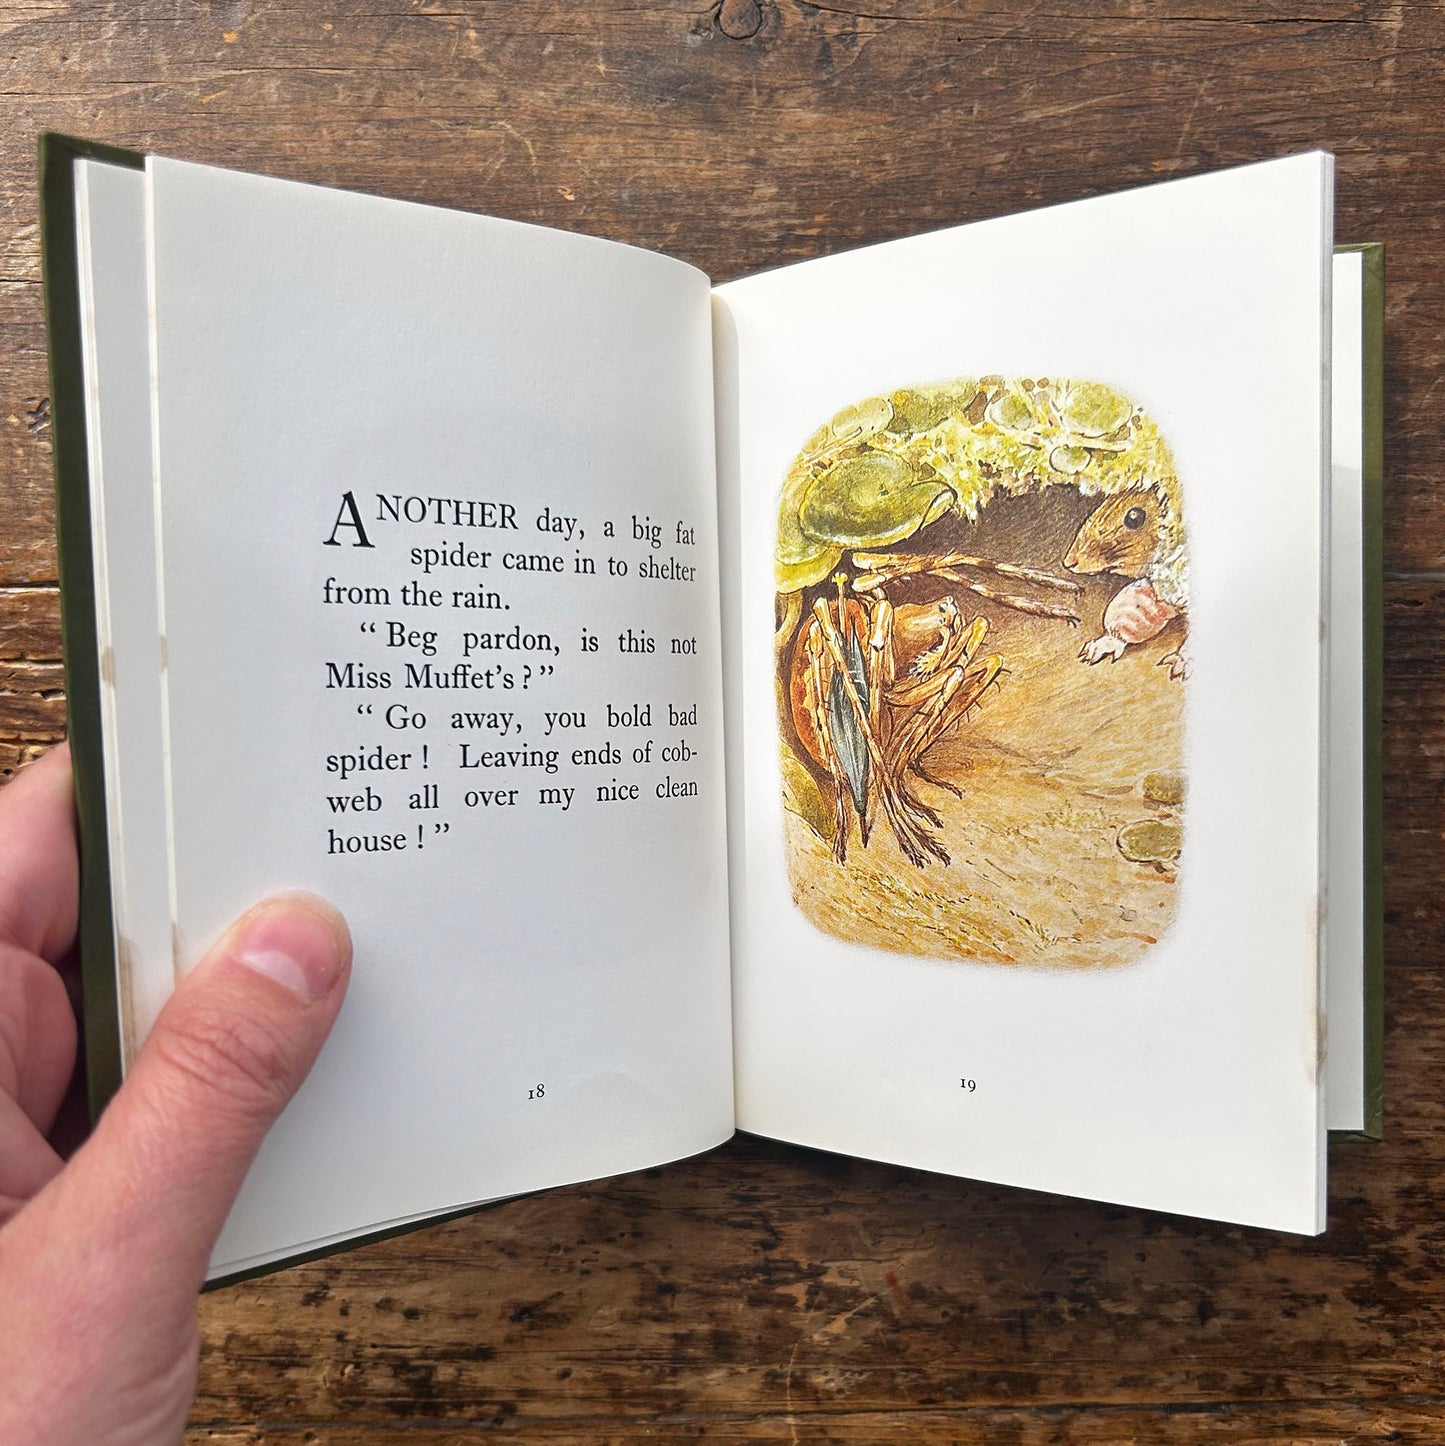 ANOTHER day, a big fat
spider came in to shelter
from the rain.
“ Beg pardon, is this not
Miss Muffet’s ? ”
“ Go away, you bold bad
spider ! Leaving ends of cob-
web all over my nice clean
house ! ”
18
19